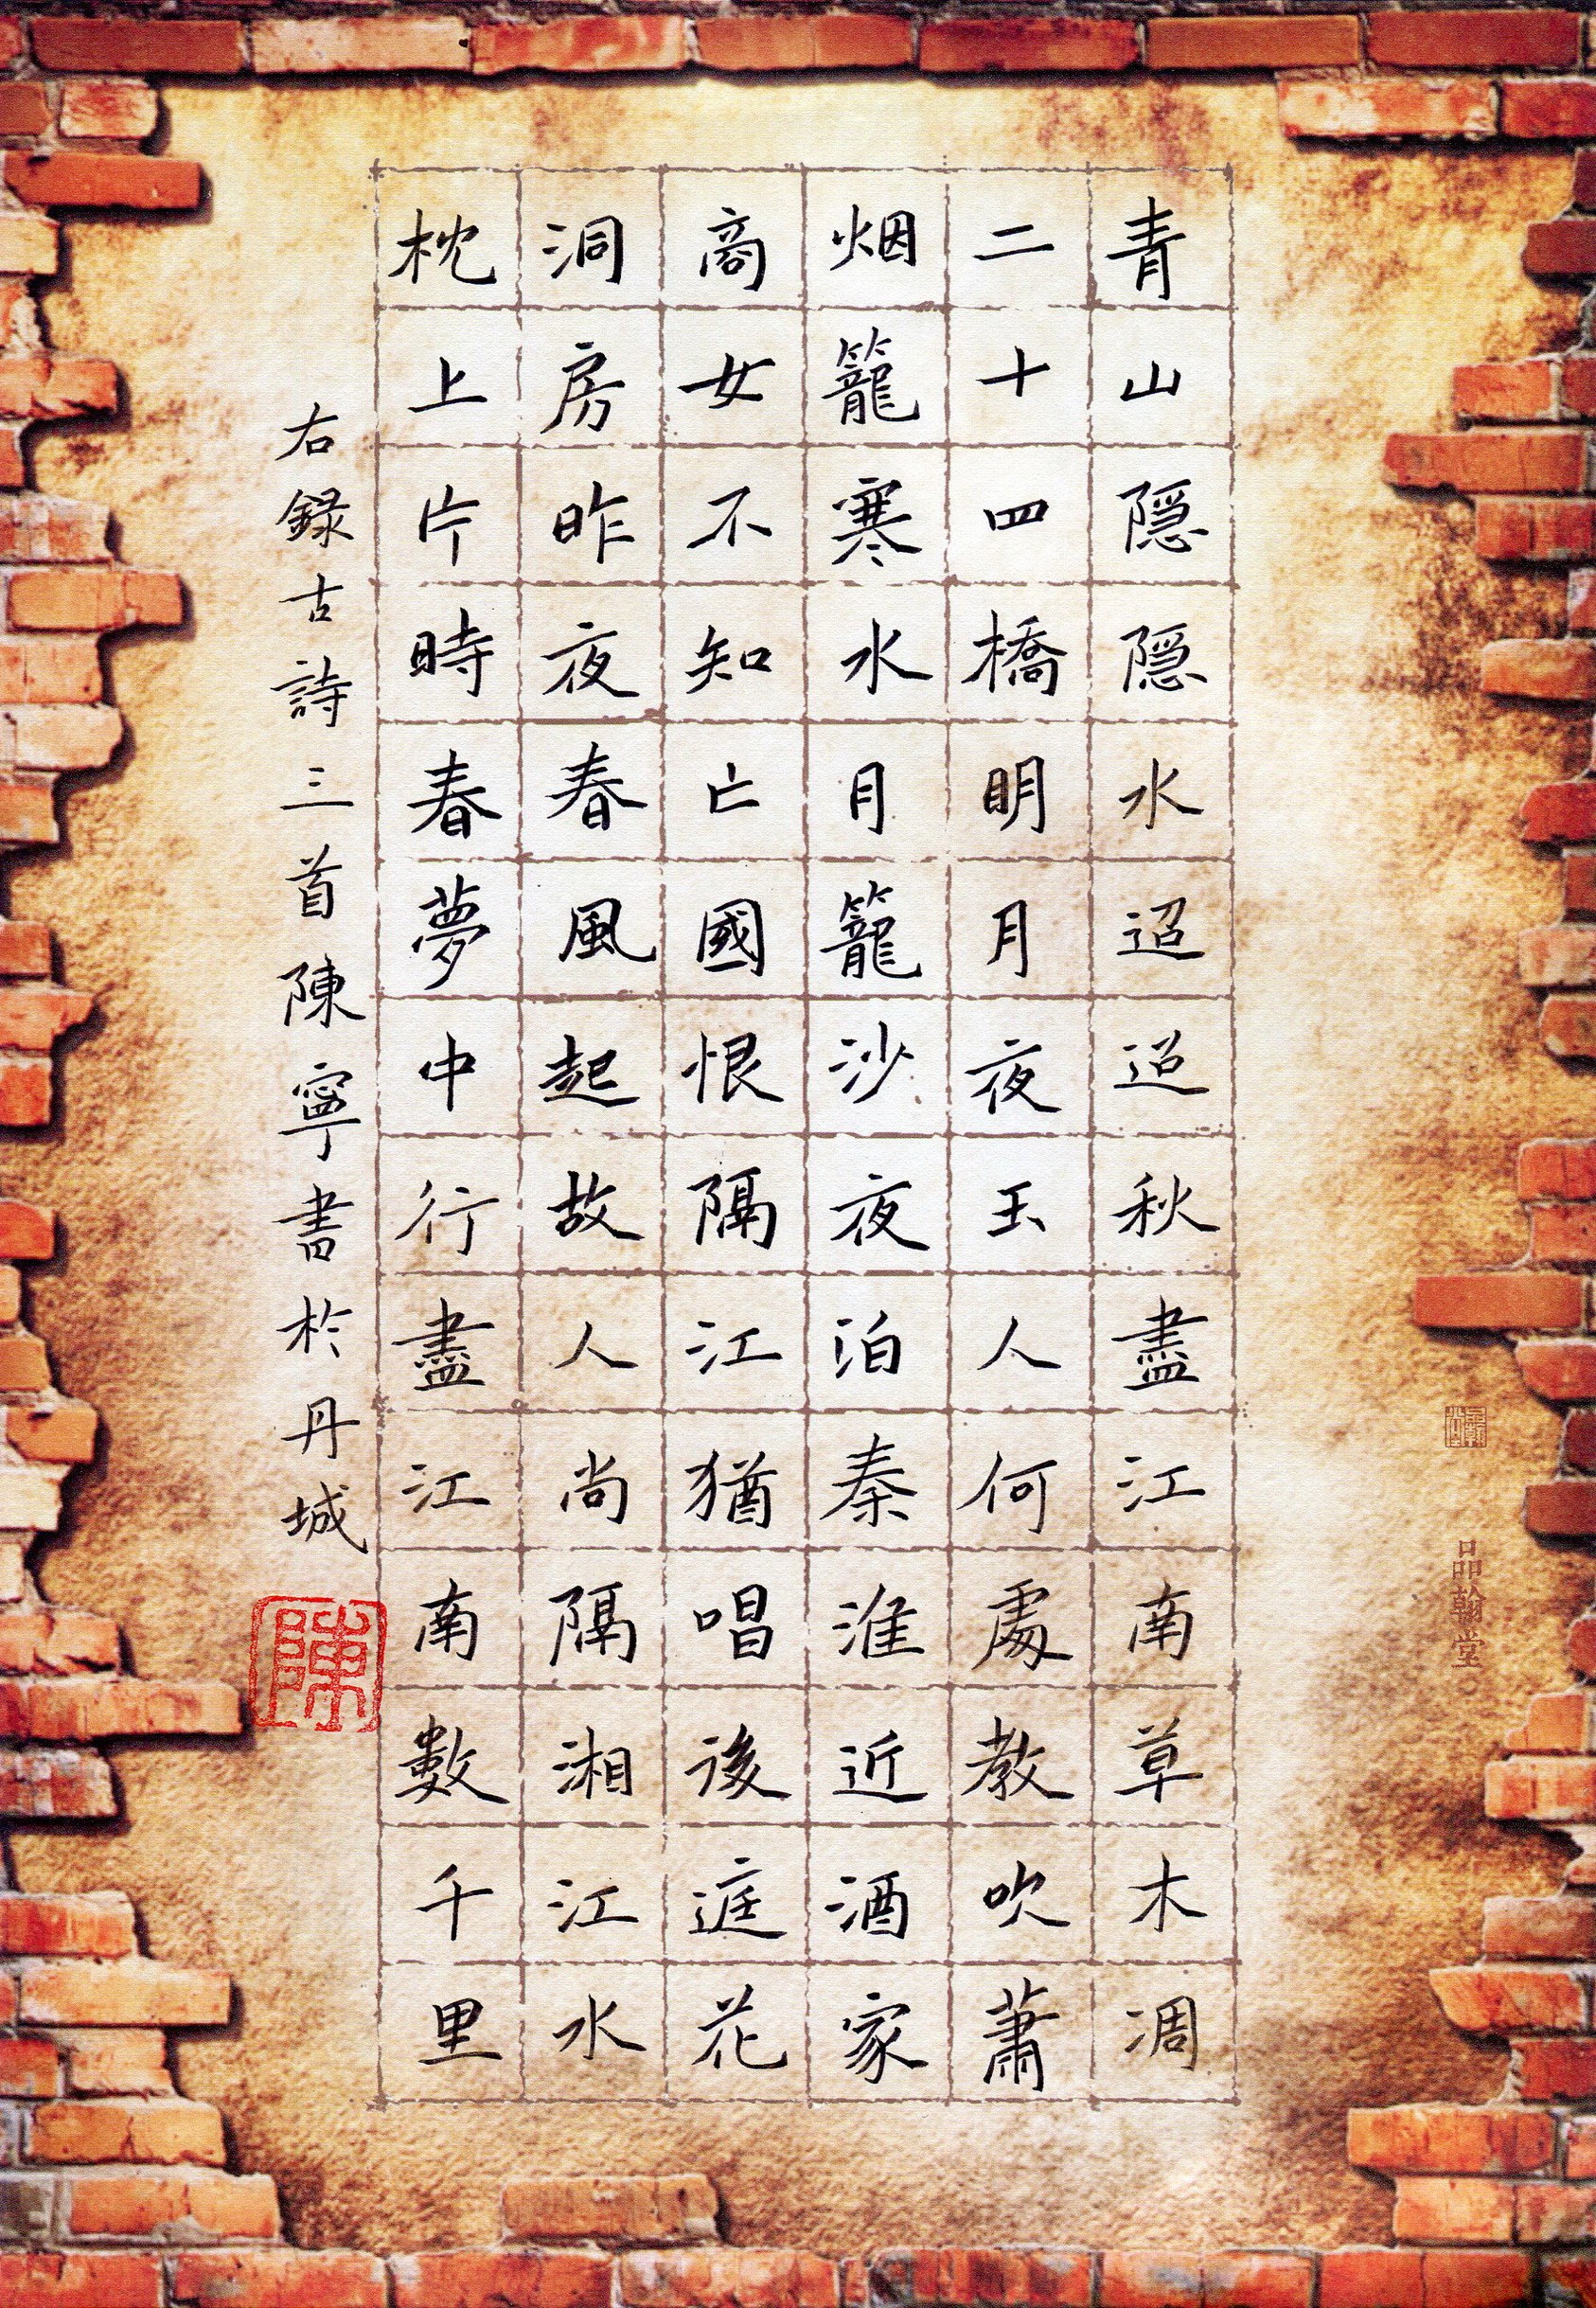 青山隱隱水迢迢秋盡江南草木凋
二十四橋明月夜玉人何處教吹蕭
烟籠寒水月籠沙夜泊秦淮近酒家
商女不知亡國恨隔江猶唱後庭花
洞房昨夜春風起故人尚隔湘江水
枕上片時春夢中行盡江南數千里
右錄古詩三首陳寧書於丹城
陳
品翰堂